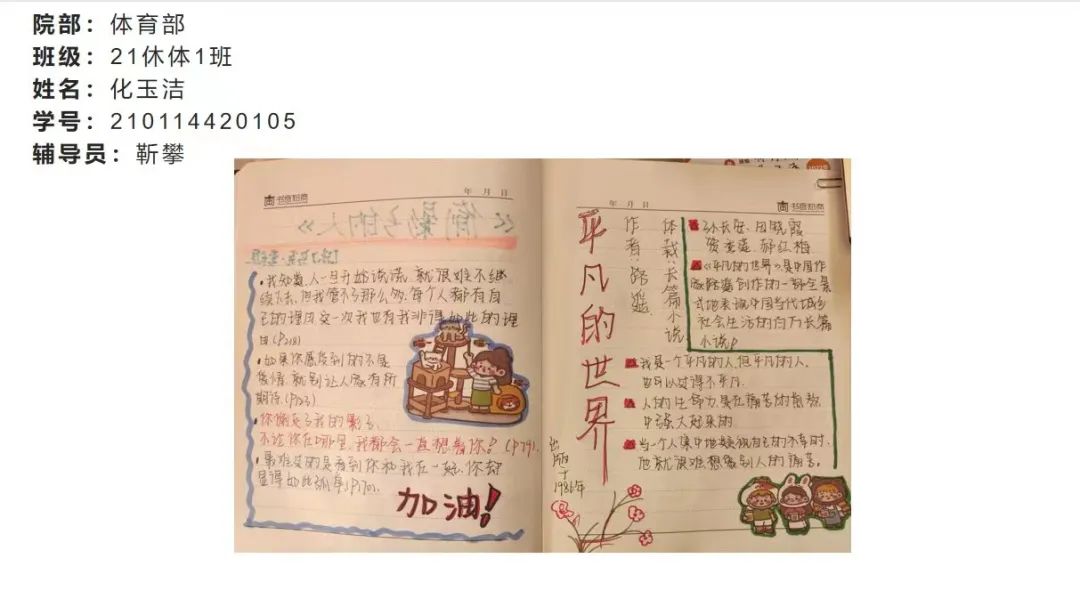 院部：体育部
班级：21休体1班
姓名：化玉洁
学号：210114420105
辅导员：靳攀
书香招商
年 月 日
《偷影子的人》
我知道,人一旦开始说谎,就很难不继
续下去,但我管不了那么多,每个人都有自
己的理由,这一次我也有我非得如此的理
由.(P218)
如果你感受到的不是
爱情,就别让人有所
期待.(P203)
你偷走了我的影子,
不论你在哪里,我都会一直想着你! (P79).
最难受的是看到你和我在一起,你却
显得如此孤单(P170).
加油!
年 月 日
书香招商
平凡的世界
作者:路遥
体裁:长篇小说
出版于
1986年
孙少安、田晓霞
贺秀莲、郝红梅
《平凡的世界》是中国作
家路遥创作的一部全景
式地表现中国当代城乡
社会生活的百万长篇
小说。
我是一个平凡的人,但平凡的人,
也可以过得不平凡.
人的生命力,是在痛苦的煎熬
中强大起来的.
当一个人集中地疑视自己的不幸时,
他就很难想象别人的痛苦。